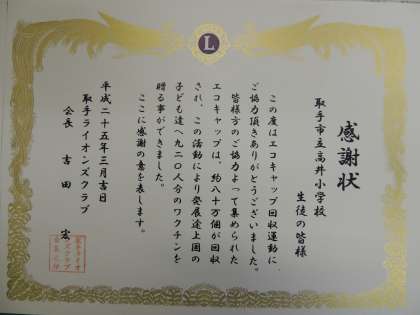 L
感謝状
取手市立高井小学校
生徒の皆様
この度はエコキャップ回収運動に
ご協力頂きありがとうございました。
皆様方のご協力よって集められた
エコキャップは、約八十万個が回収
され、この活動により発展途上国の
子ども達へ九二〇人分のワクチンを
贈る事ができました。
ここに感謝の意を表します。
平成二十五年三月吉日
取手ライオンズクラブ
会長 吉田 宏
取手ライオ
ンズクラブ